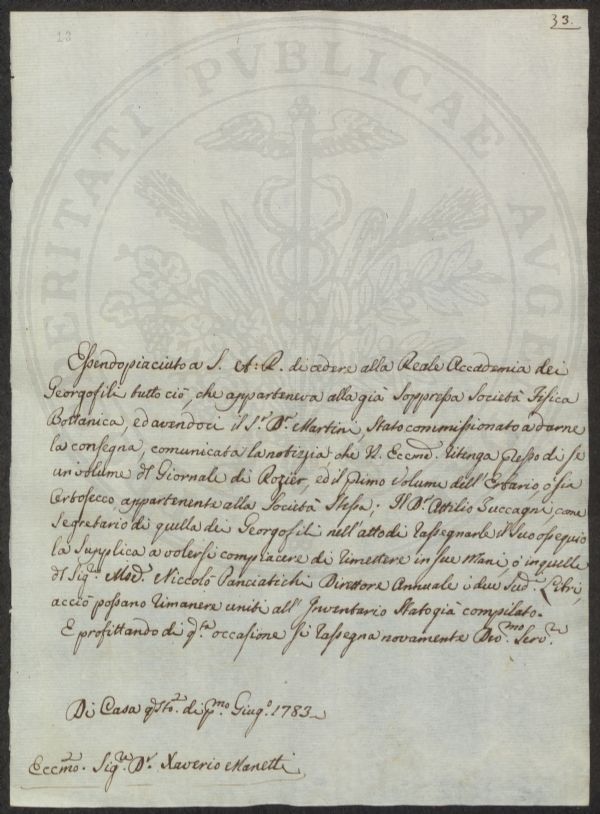 18
33.
VERITATI PVBLICAE AVGE
Essendo piaciuto a S. A: R. di cedere alla Reale Accademia dei
Georgofili tutto ciò, che apparteneva alla già Soppressa Società Fisica
Bottanica, ed avendoci il S.r D.r Martini, Stato commissionato a darne
la consegna, comunicata la notizia che V. Eccmã. ritenga presso di se
un volume dl Giornale di Rozier, ed il primo Volume dell'Erbario o sia
Orto secco appartenente alla Società Stessa; Il D.r Attilio Zuccagni come
Segretario di quella dei Georgofili nell'atto di rassegnarle il Suo ossequio
la Supplica a volersi compiacere di rimettere in sue Mani, ò in quelle
dl Sig.r Niccolò Panciatichi Direttore Annuale i due Sud.i Libri,
acciò possano rimanere uniti all' Inventario Stato già compilato.
E profittando di q.ta occasione si rassegna novamente Dev.mo Serv.re
Di Casa q.sto dì p.mo Giug.o 1783
Eccmo. Sig.re D.r Xaverio Manetti